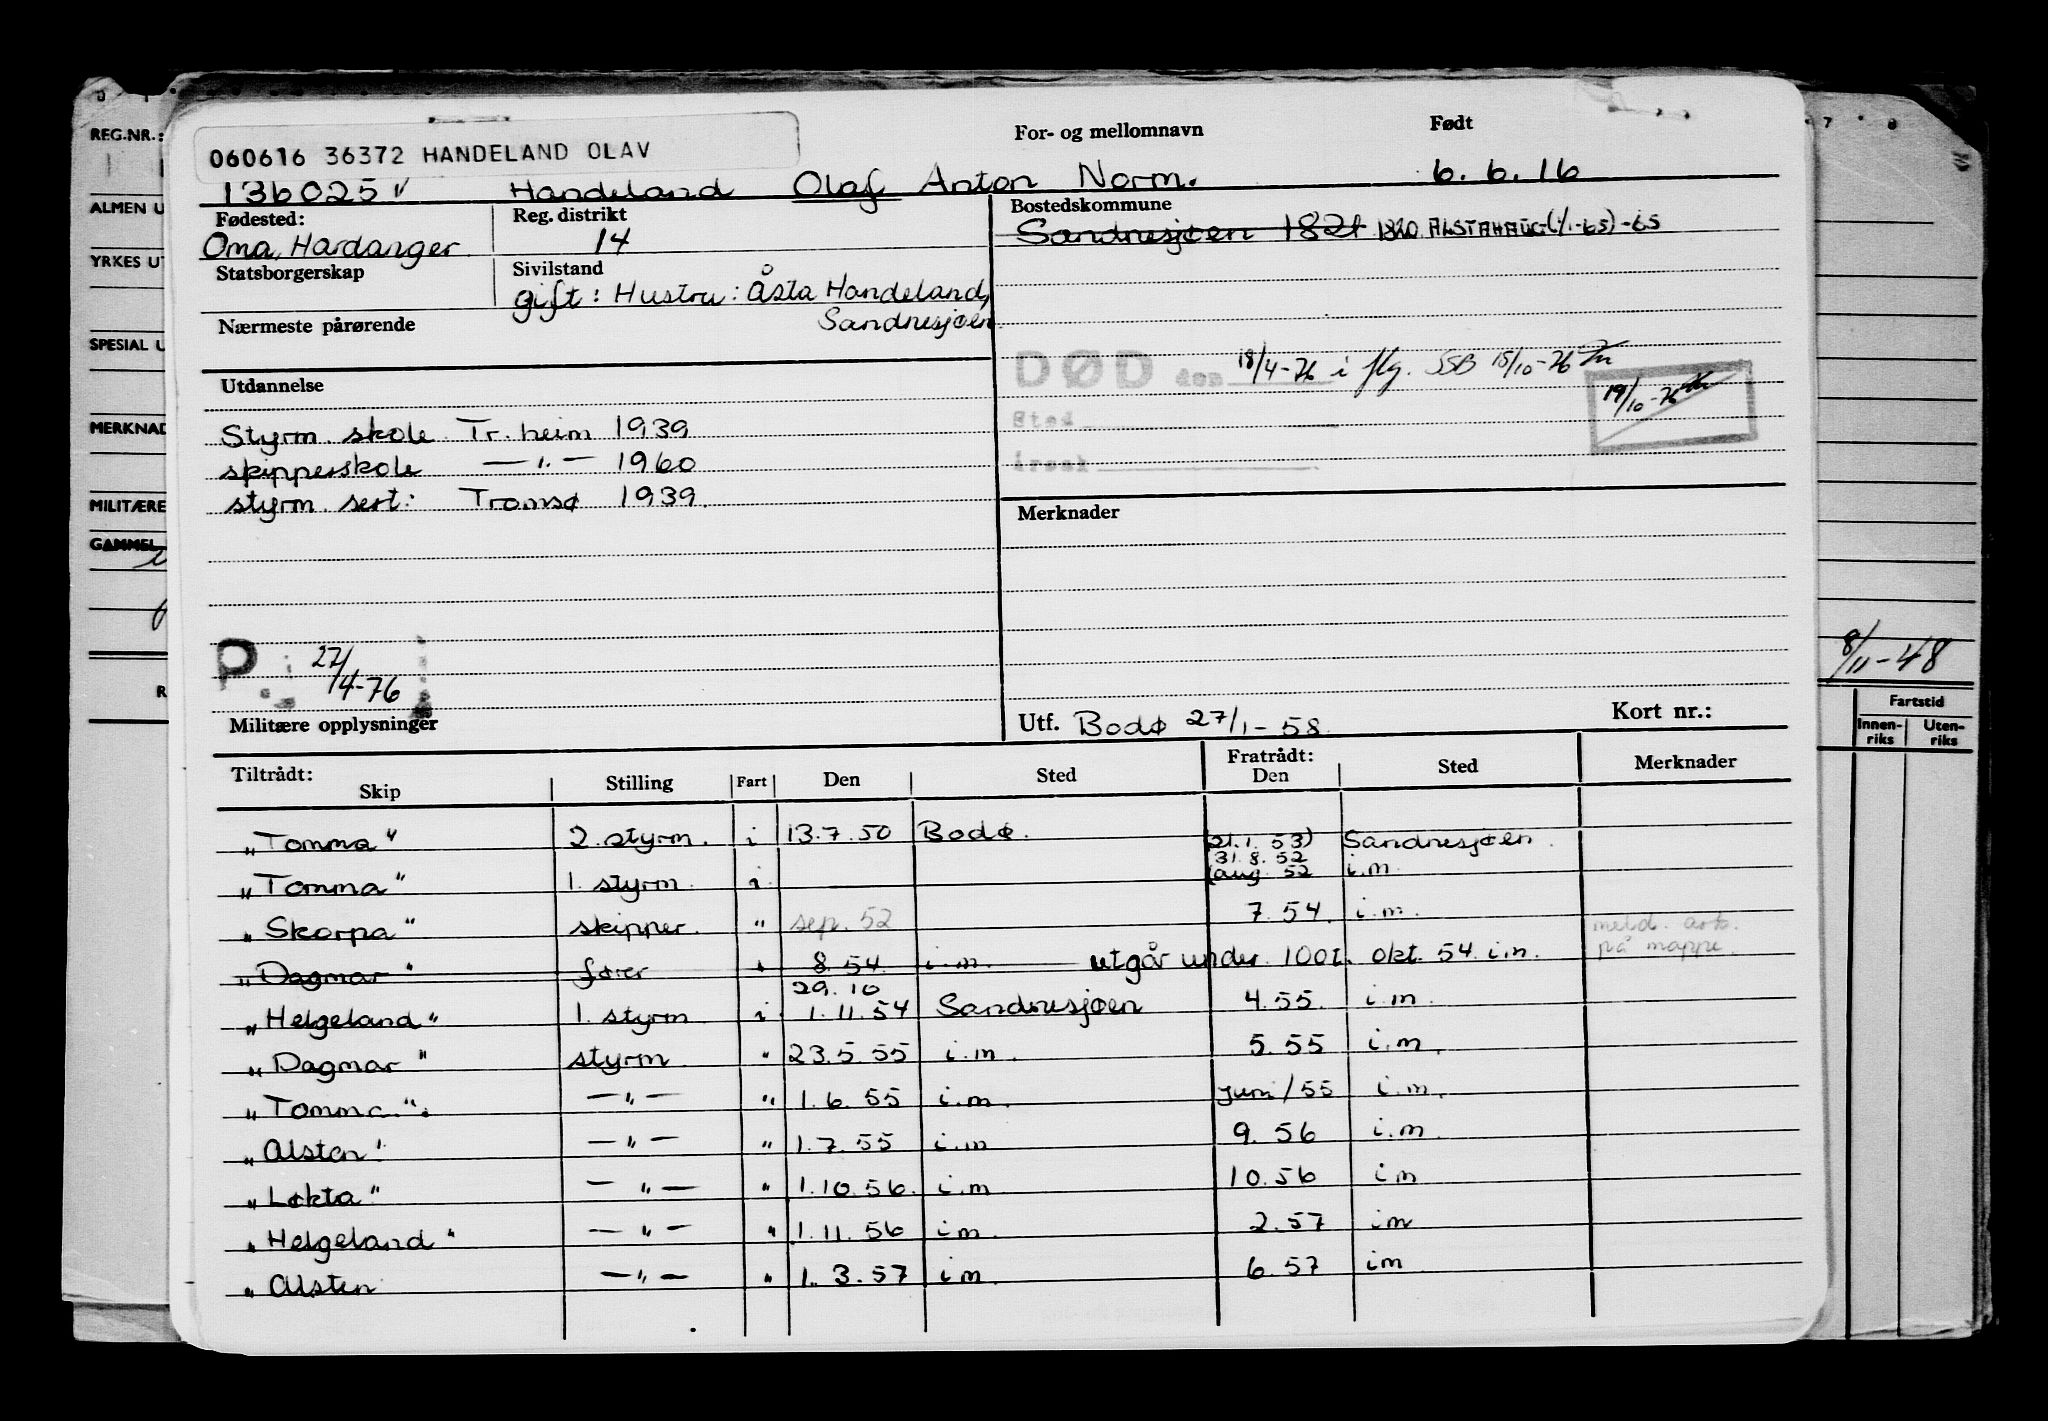 REG.NR.:
ALMEN U
YRKES UT
SPESIAL U
MERKNAD
MILITÆRE
GAMMEL
R
060616 36372 HANDELAND OLAV
For- og mellomnavn Født
136025 Handeland Olaf Anton Norm. 6.6.16
Fødested: Reg. distrikt Bostedskommune
Oma, Hardanger 14 Sandnesjøen 1821 1820 ALSTAHAUG (1/1-65) -65
Statsborgerskap Sivilstand
gift: Hustru: Åsta Handeland,
Sandnesjøen
Nærmeste pårørende
DØD den 18/4-76 i flg. SSB 15/10-76
Sted
Årsak
19/10-76
Utdannelse
Styrm. skole Tr.heim 1939
skipperskole —"— 1960
styrm. sert: Tromsø 1939.
Merknader
P. 27/4-76
Militære opplysninger
Utf. Bodø 27/1-58. Kort nr.:
8/11-48
Fartstid
Innen-riks Uten-riks
Tiltrådt: Fratrådt:
Skip Stilling Fart Den Sted Den Sted Merknader
"Tomma" 2. styrm. i 13.7.50 Bodø. (21.1.53) Sandnesjøen.
31.8.52
"Tomma" 1. styrm. i (aug. 52 i.m.
"Skorpa" skipper. " sep. 52 7.54. i.m.
meld. arb.
på mappe.
"Dagmar" fører i 8.54 i.m. utgår under 100t. okt. 54 i.m.
29.10
"Helgeland" 1. styrm i 1.11.54 Sandnesjøen 4.55. i.m.
"Dagmar" styrm. " 23.5.55 i.m. 5.55 i.m.
"Tomma". —"— " 1.6.55 i.m. juni/55 i.m.
"Alsten" —"— " 1.7.55 i.m 9.56 i.m.
"Løkta" —"— " 1.10.56. i.m 10.56 i.m
"Helgeland" —"— " 1.11.56 i.m. 2.57 im
"Alsten —"— " 1.3.57 i.m. 6.57 im